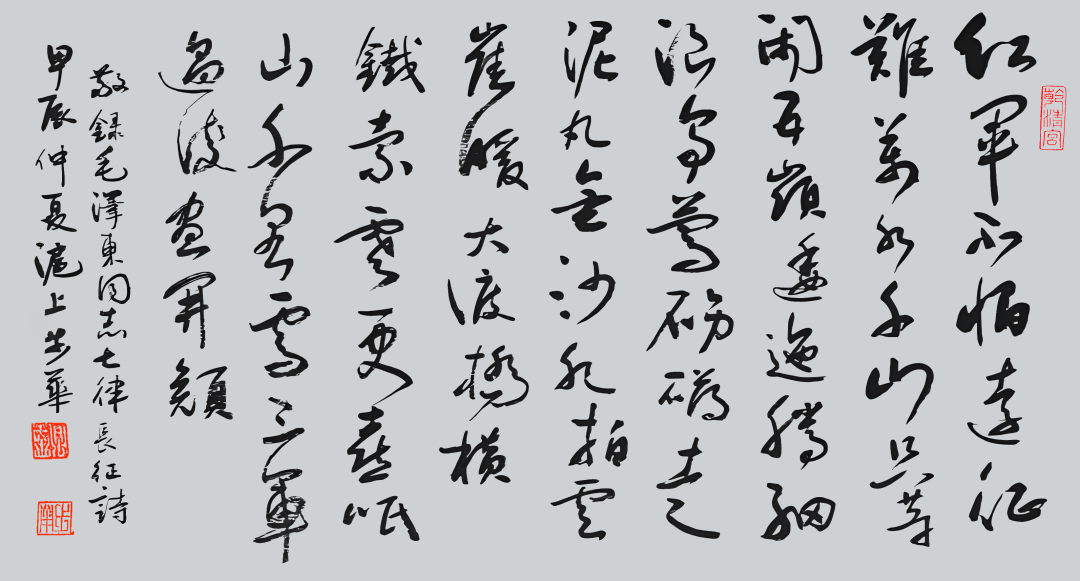 紅軍不怕遠征
難萬水千山只等
閒五嶺逶迤騰細
浪烏蒙磅礴走
泥丸金沙水拍雲
崖暖大渡橋橫
鐵索寒更喜岷
山千里雪三軍
過後盡開顏
敬錄毛澤東同志七律長征詩
甲辰仲夏滬上華